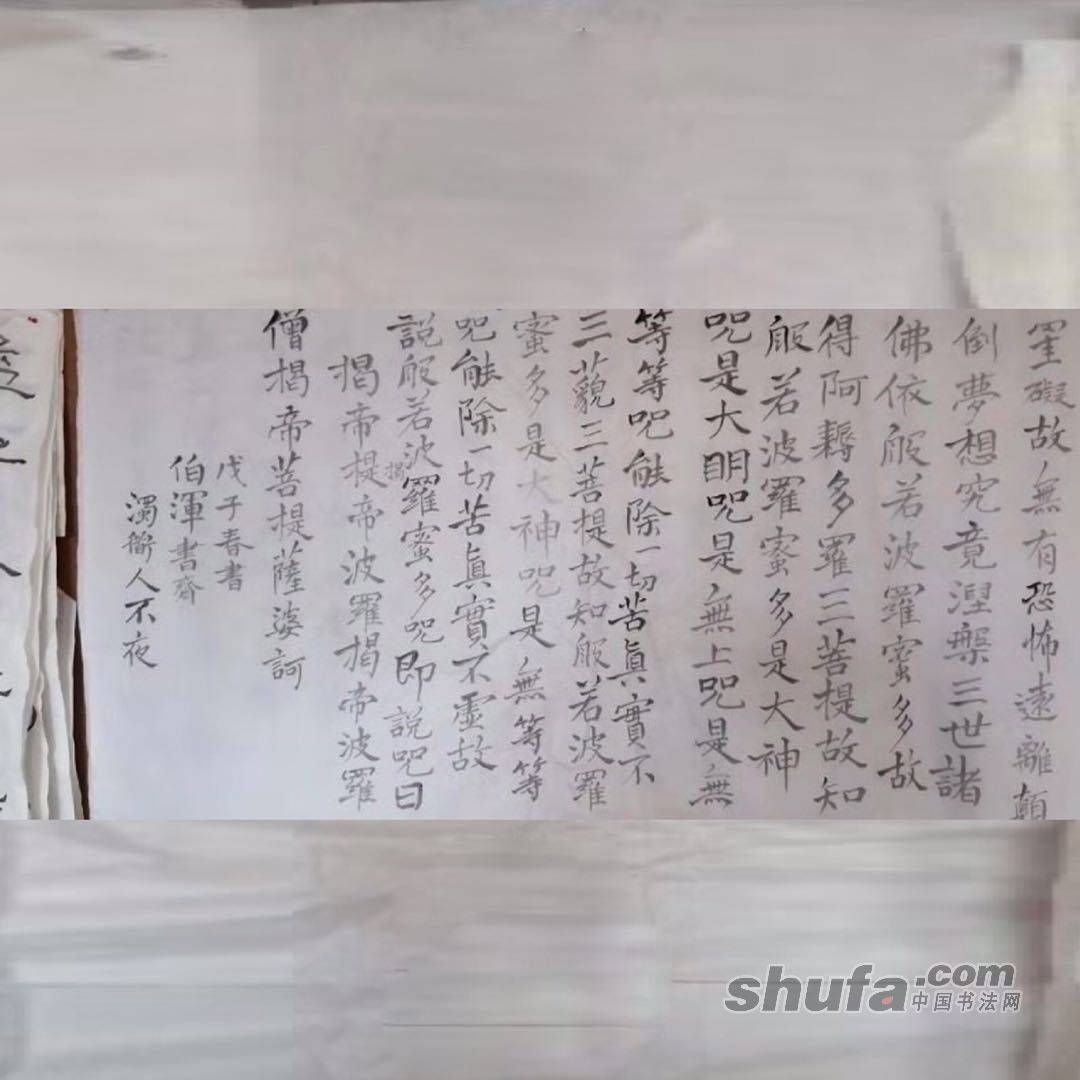 罣礙故無有恐怖遠離顛
倒夢想究竟涅槃三世諸
佛依般若波羅蜜多故
得阿耨多羅三菩提故知
般若波羅蜜多是大神
咒是大明咒是無上咒是無
等等咒能除一切苦真實不
三藐三菩提故知般若波羅
蜜多是大神咒是無等等
咒能除一切苦真實不虛故
說般若波羅蜜多咒即說咒曰
揭
揭帝揭帝波羅揭帝波羅
僧揭帝菩提薩婆訶
戊子春書
伯渾書齋
濁人不夜
shufa.com
中国书法网